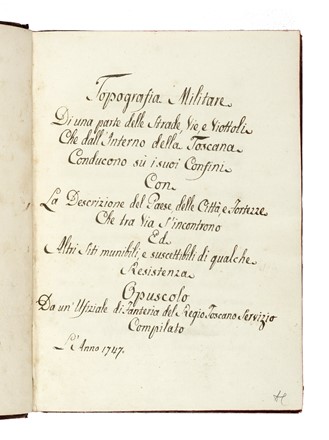 Topografia Militare
Di una parte delle Strade, Vie, e Viottoli
Che dall'Interno della Toscana
Conducono sù i suoi Confini
Con
La Descrizione del Paese, delle Città, e Fortezze
Che tra Via S'incontrono
Ed
Altri Siti munibili, e suscettibili di qualche
Resistenza
Opuscolo
Da un' Ufiziale di Fanteria del Regio Toscano Servizio
Compilato
L'Anno 1747.